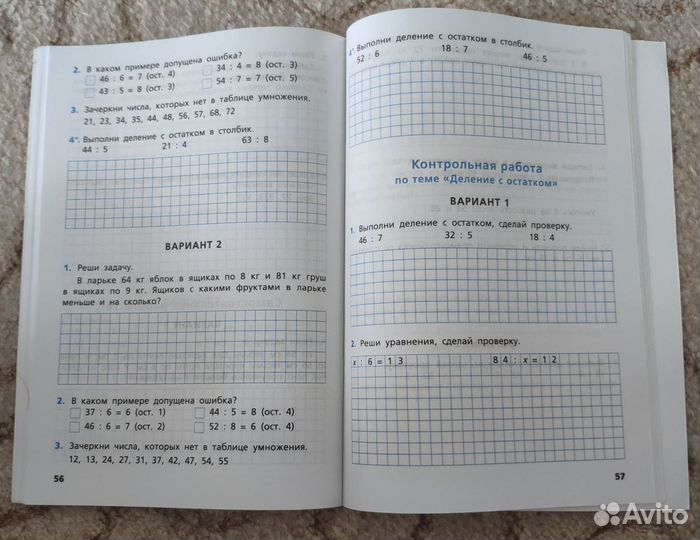 2. В каком примере допущена ошибка?
46 : 6 = 7 (ост. 4) 34 : 4 = 8 (ост. 3)
43 : 5 = 8 (ост. 3) 54 : 7 = 7 (ост. 5)
3. Зачеркни числа, которых нет в таблице умножения.
21, 23, 34, 35, 44, 48, 56, 57, 68, 72
4*. Выполни деление с остатком в столбик.
44 : 5 21 : 4 63 : 8
ВАРИАНТ 2
1. Реши задачу.
В ларьке 64 кг яблок в ящиках по 8 кг и 81 кг груш
в ящиках по 9 кг. Ящиков с какими фруктами в ларьке
меньше и на сколько?
2. В каком примере допущена ошибка?
37 : 6 = 6 (ост. 1) 44 : 5 = 8 (ост. 4)
46 : 6 = 7 (ост. 2) 52 : 8 = 6 (ост. 4)
3. Зачеркни числа, которых нет в таблице умножения.
12, 13, 24, 27, 31, 37, 42, 47, 54, 55
56
4*. Выполни деление с остатком в столбик.
52 : 6 18 : 7 46 : 5
Контрольная работа
по теме «Деление с остатком»
ВАРИАНТ 1
1. Выполни деление с остатком, сделай проверку.
46 : 7 32 : 5 18 : 4
2. Реши уравнения, сделай проверку.
x : 6 = 13 84 : x = 12
57
Avito